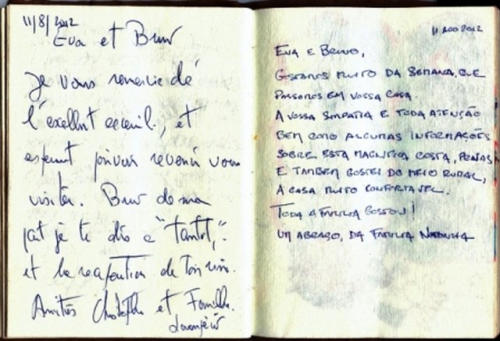 11/8/2012
Eva et Bruno
Je vous remercie de
l'excellent accueil, et
espérant pouvoir revenir vous
visiter. Bruno de ma
part je te dis a "tantot",
et la réception de ton
Amitiés Christophe et Famille.
11 AGO 2012
EVA E BRUNO,
GOSTAMOS MUITO DA SEMANA, QUE
PASSAMOS EM VOSSA CASA.
A VOSSA SIMPATIA E TODA ATENÇÃO
BEM COMO ALGUMAS INFORMAÇÕES
SOBRE ESTA MAGNIFICA COSTA,
E TAMBEM GOSTEI DO MEIO RURAL,
A CASA MUITO CONFORTAVEL.
TODA A FAMILIA GOSTOU!
UM ABRAÇO, DA FAMILIA